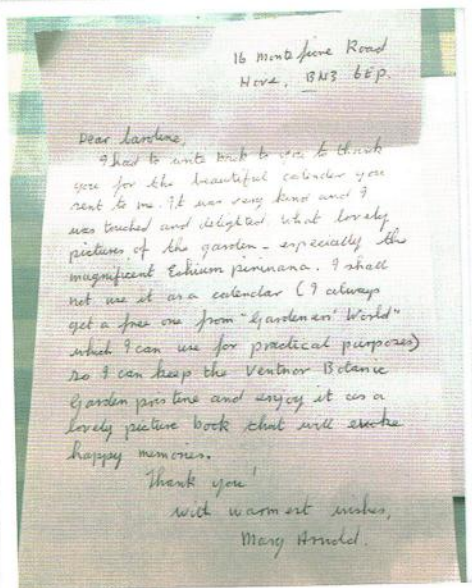 16 Montefiore Road
Hove, BN3 6EP.
Dear Caroline,
I had to write back to you to thank
you for the beautiful calendar you
sent to me. It was very kind and I
was touched and delighted. What lovely
pictures of the garden - especially the
magnificent Echium pininana. I shall
not use it as a calendar (I always
get a free one from "Gardeners' World"
which I can use for practical purposes)
so I can keep the Ventnor Botanic
Garden pristine and enjoy it as a
lovely picture book that will evoke
happy memories.
Thank you!
with warmest wishes,
Mary Arnold.